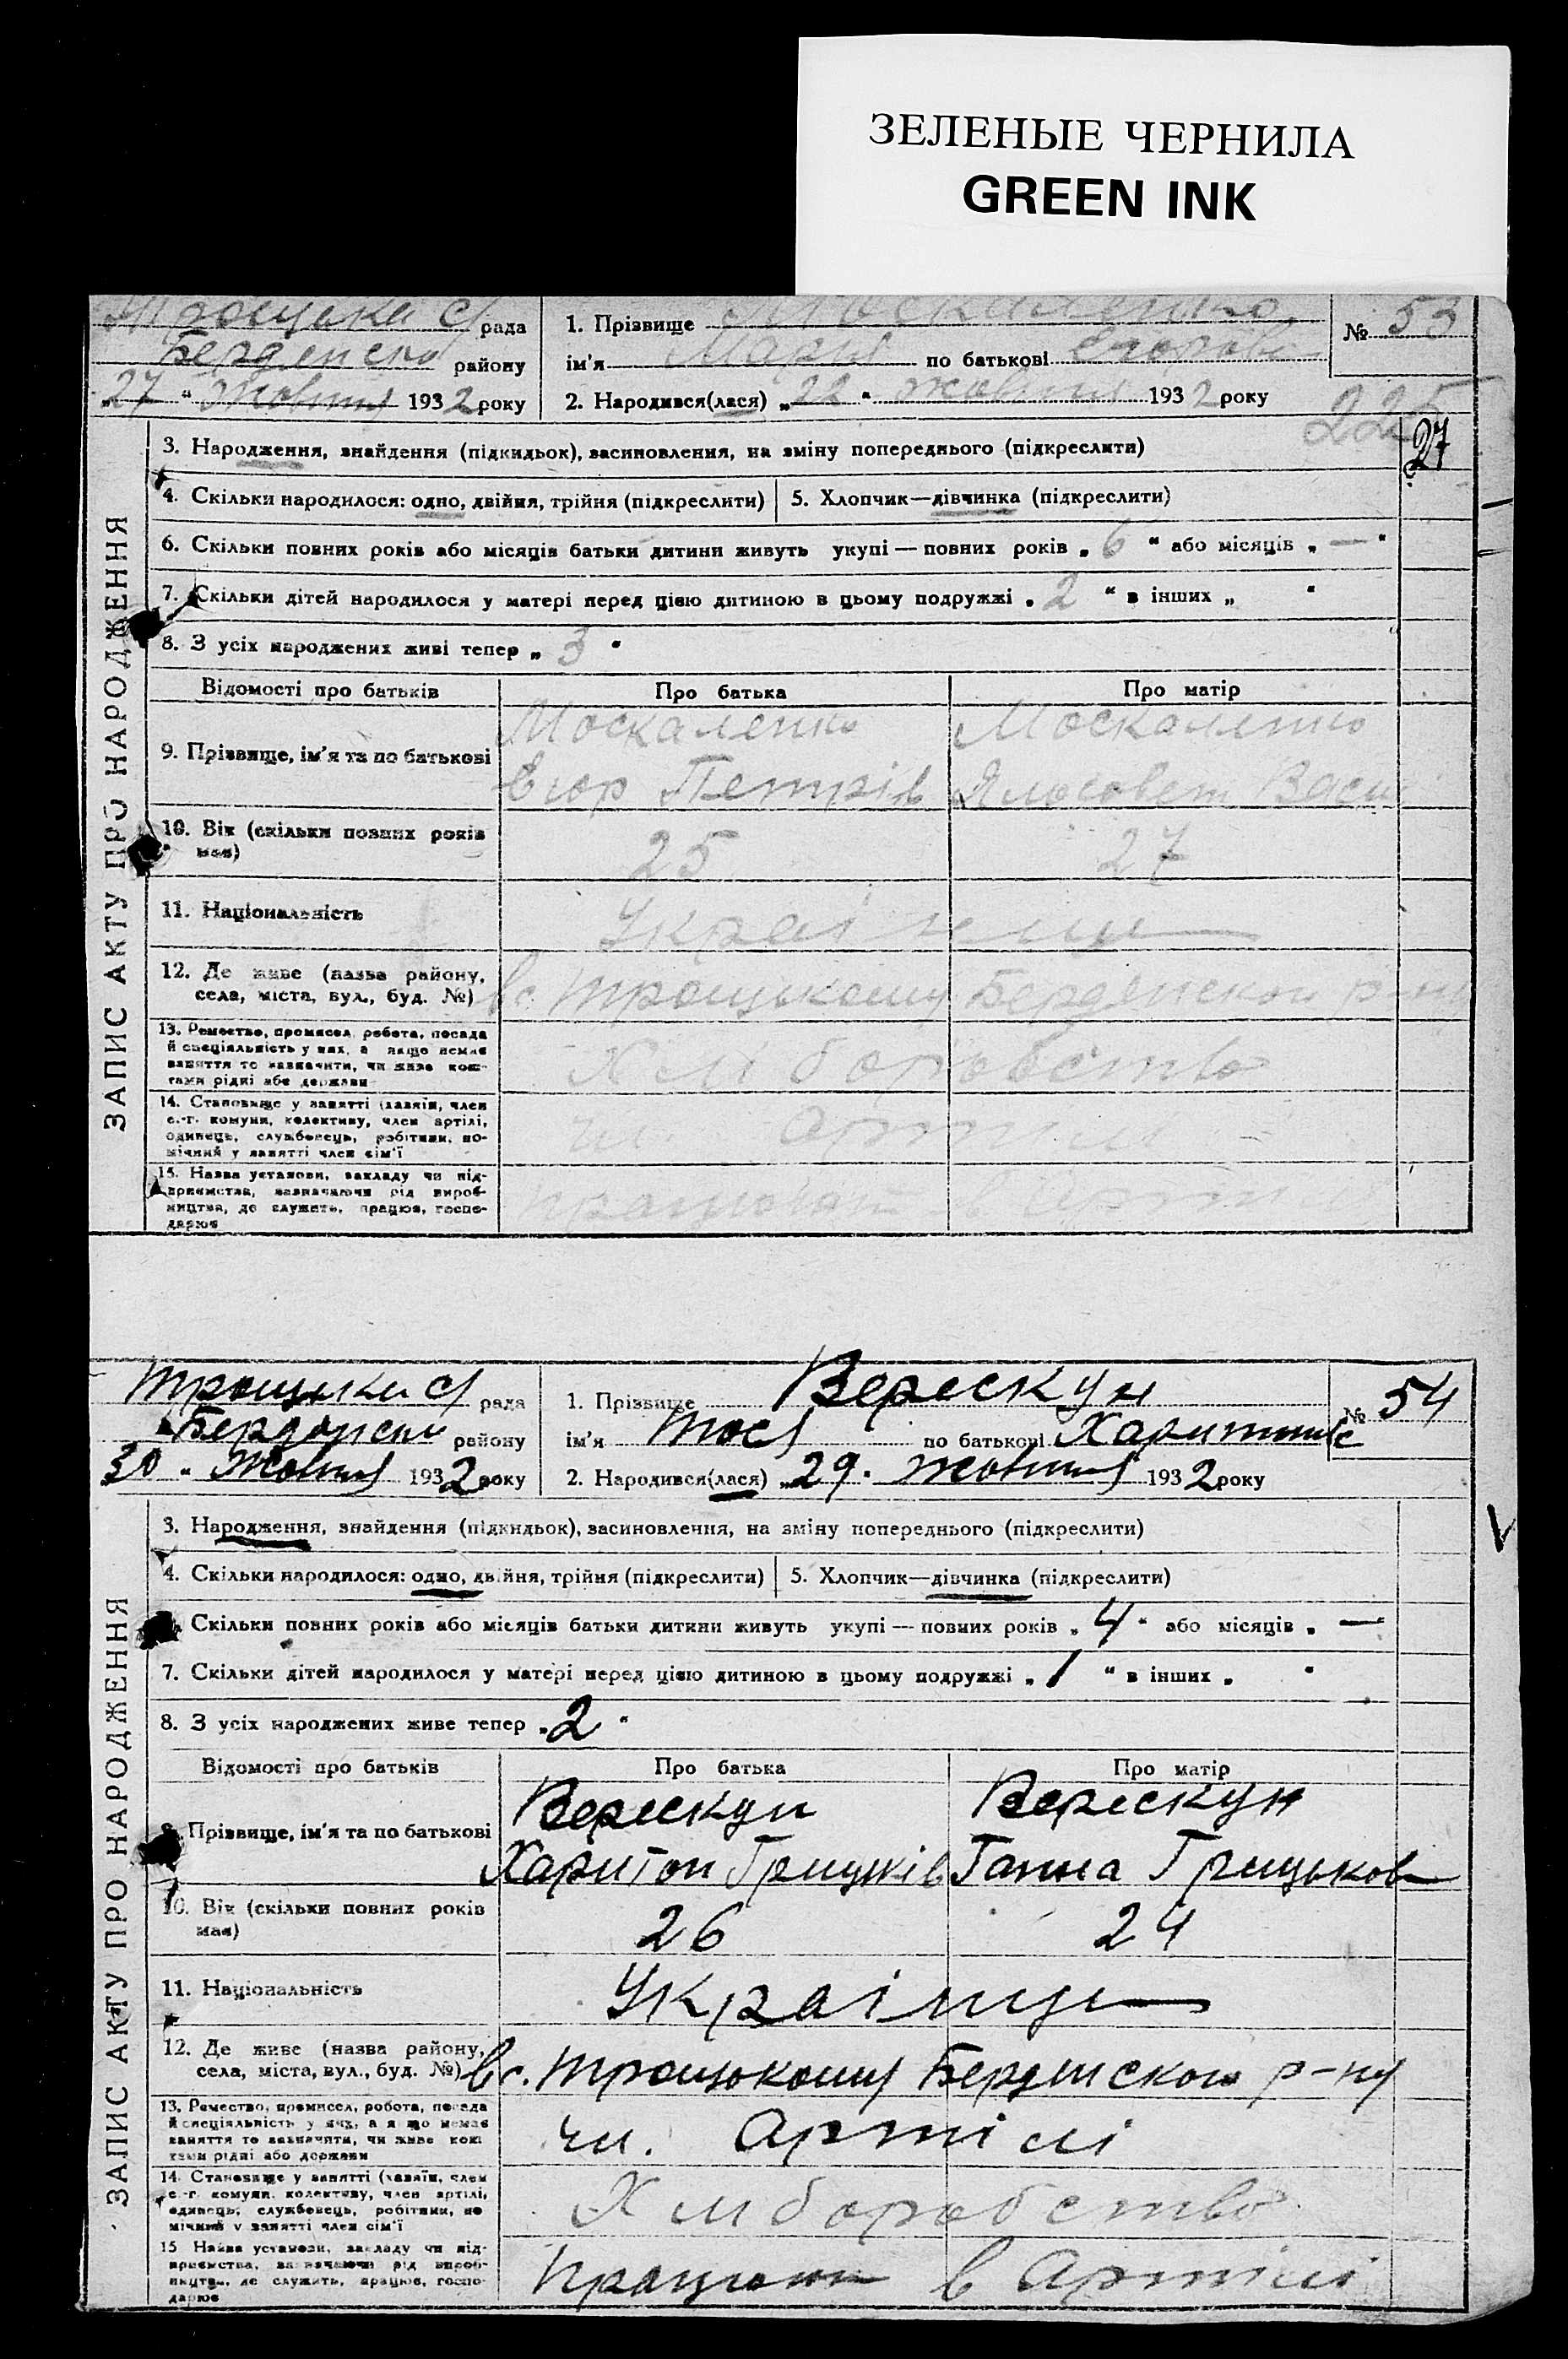 ЗЕЛЕНЫЕ ЧЕРНИЛА
GREEN INK
Троцька с/ рада
Берденско району
„27 “ Жовтня 1932 року
1. Прізвище Москаленко
ім'я Марія по батькові Єгоровн
2. Народився(лася) „22 “ жовтня 1932 року
№ 53
225
27
ЗАПИС АКТУ ПРО НАРОДЖЕННЯ
3. Народження, знайдення (підкидьок), засиновлення, на зміну попереднього (підкреслити)
4. Скільки народилося: одно, двійня, трійня (підкреслити) 5. Хлопчик—дівчинка (підкреслити)
6. Скільки повних років або місяців батьки дитини живуть укупі — повних років „ 6 “ або місяців „ — “
7. Скільки дітей народилося у матері перед цією дитиною в цьому подружжі „ 2 “ в інших „ “
8. З усіх народжених живі тепер „ 3 “
Відомості про батьків Про батька Про матір
9. Прізвище, ім'я та по батькові
Москаленко Москаленко
Єгор Петрів Васи
10. Вік (скільки повних років має) 25 27
11. Національність Українци
12. Де живе (назва району,
села, міста, вул., буд. №) В с. Троцькому Берденского р-ну
13. Ремество, промисел, робота, посада
й спеціяльність у них, а якщо немає
заняття то зазначити, чи живе кош-
тами рідні або держави
Хліборобство
14. Становище у занятті (хазяїн, член
с.-г. комуни, колективу, член артілі,
одинець, службовець, робітник, по-
мічний у занятті член сім'ї
чл Артілі
15. Назва установи, закладу чи під-
приємства, зазначаючи рід вироб-
ництва, де служить, працює, госпо-
дарює
працюють в Арті
Троцька с/ рада
Берденско району
30 „ Жовтня 1932 року
1. Прізвище Верескун
ім'я Тося по батькові Харитонівс
2. Народився(лася) „29. Жовтня 1932 року
№ 54
ЗАПИС АКТУ ПРО НАРОДЖЕННЯ
3. Народження, знайдення (підкидьок), засиновлення, на зміну попереднього (підкреслити)
4. Скільки народилося: одно, двійня, трійня (підкреслити) 5. Хлопчик—дівчинка (підкреслити)
Скільки повних років або місяців батьки дитини живуть укупі — повних років „ 4 “ або місяців „ — “
7. Скільки дітей народилося у матері перед цією дитиною в цьому подружжі „ 1 “ в інших „ “
8. З усіх народжених живе тепер „ 2 “
Відомості про батьків Про батька Про матір
9. Прізвище, ім'я та по батькові
Верескун Верескун
Харитон Грицьків Ганна Грицьков
10. Вік (скільки повних років має) 26 24
11. Національність Українци
12. Де живе (назва району,
села, міста, вул., буд. №) В с. Троцькому Берденского р-ну
13. Ремество, промисел, робота, посада
й спеціяльність у них, а якщо немає
заняття то зазначити, чи живе кош
тами рідні або держави
чл. Артілі
14. Становище у занятті (хазяїн, член
с.-г. комуни, колективу, член артілі,
одинець, службовець, робітник, по
мічний у занятті член сім'ї
Хліборобство
15 Назва установи, закладу чи під-
приємства, зазначаючи рід вироб-
ництва, де служить, працює, госпо-
дарює
Працюють в Артілі